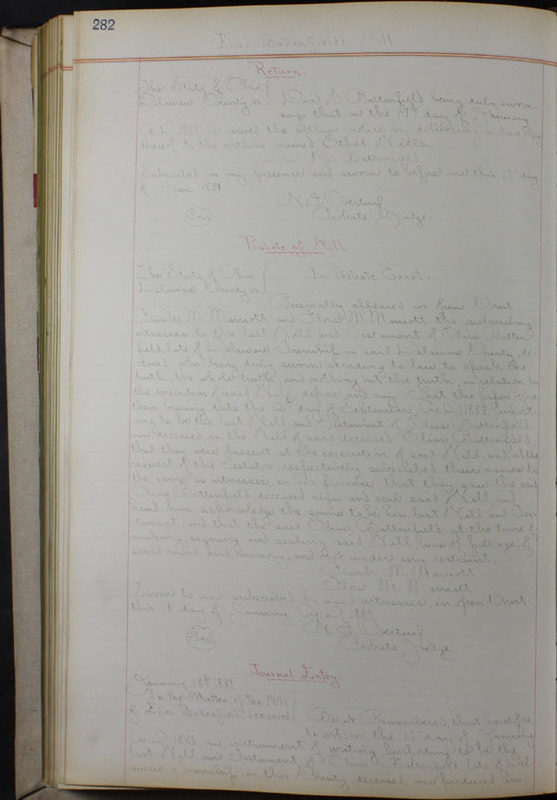 282
Elias Battenfield's Will
Return.
The State of Ohio
Delaware County ss
Battenfield being duly sworn
says that on the day of January
A.D. 1889 he served the within notice by delivering a true copy
thereof to the within named Ethel Mills.
Battenfield
Subscribed in my presence and sworn to before me this day
of Jan 1889
N. F. Overturf
Seal
Probate Judge
Probate of Will
The State of Ohio
Delaware County ss
In Probate Court.
Personally appeared in open Court
Frank M. Marriott and M. Marriott the subscribing
witnesses to the last Will and Testament of Elias Batten-
field late of Delaware Township in said Delaware County, de-
ceased who being duly sworn according to law to speak the
truth the whole truth and nothing but the truth, in relation to
the execution of said Will depose and say: That the paper before
them bearing date the day of September, A.D. 1888, purport-
ing to be the last Will and Testament of Elias Battenfield
now deceased is the Will of said deceased Elias Battenfield
that they were present at the execution of said Will, and at the
request of the Testator, respectively subscribed their names to
the same as witnesses in his presence that they saw the said
Elias Battenfield deceased sign and seal said Will and
heard him acknowledge the same to be his last Will and Tes-
tament, and that the said Elias Battenfield at the time of
making, signing and sealing said Will was of full age, of
sound mind and memory, and not under any restraint.
Frank M. Marriott
M. Marriott
Sworn to and subscribed by said witnesses in open Court
this day of January A.D. 1889
N. F. Overturf
Seal
Probate Judge
Journal Entry.
January 1889
In the Matter of the Will
of Elias Battenfield deceased
Be it Remembered that heretofore
to wit: on the day of January
A.D. 1889 an instrument of writing purporting to be the
last Will and Testament of Elias Battenfield late of Del-
aware Township, in this County deceased, was produced in